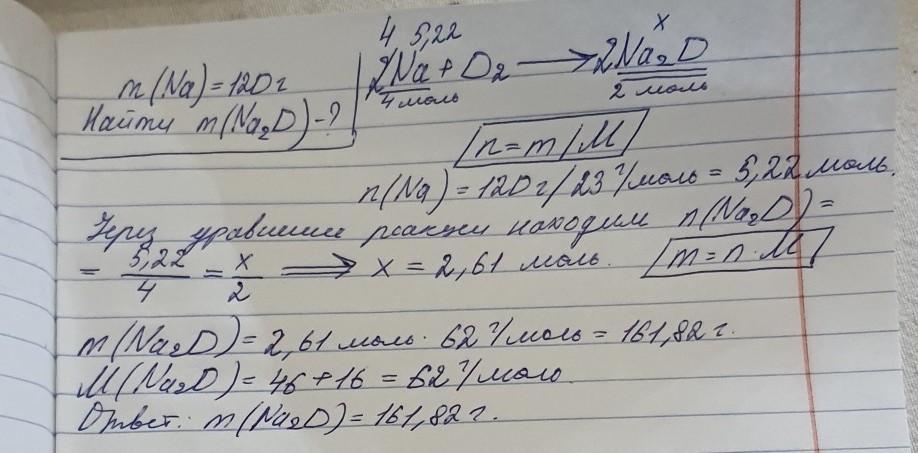 4 5,22 x
m(Na)=120г 2Na + O₂ ⟶ 2Na₂O
4 моль 2 моль
Найти m(Na₂O)-?
n=m/M
n(Na)=120г/23г/моль=5,22 моль.
Через уравнение реакции находим n(Na₂O)=
= 5,22/4 = x/2 ⟹ x = 2,61 моль. m=n·M
m(Na₂O)=2,61 моль·62г/моль=161,82г.
M(Na₂O)=46+16=62г/моль
Ответ: m(Na₂O)=161,82г.